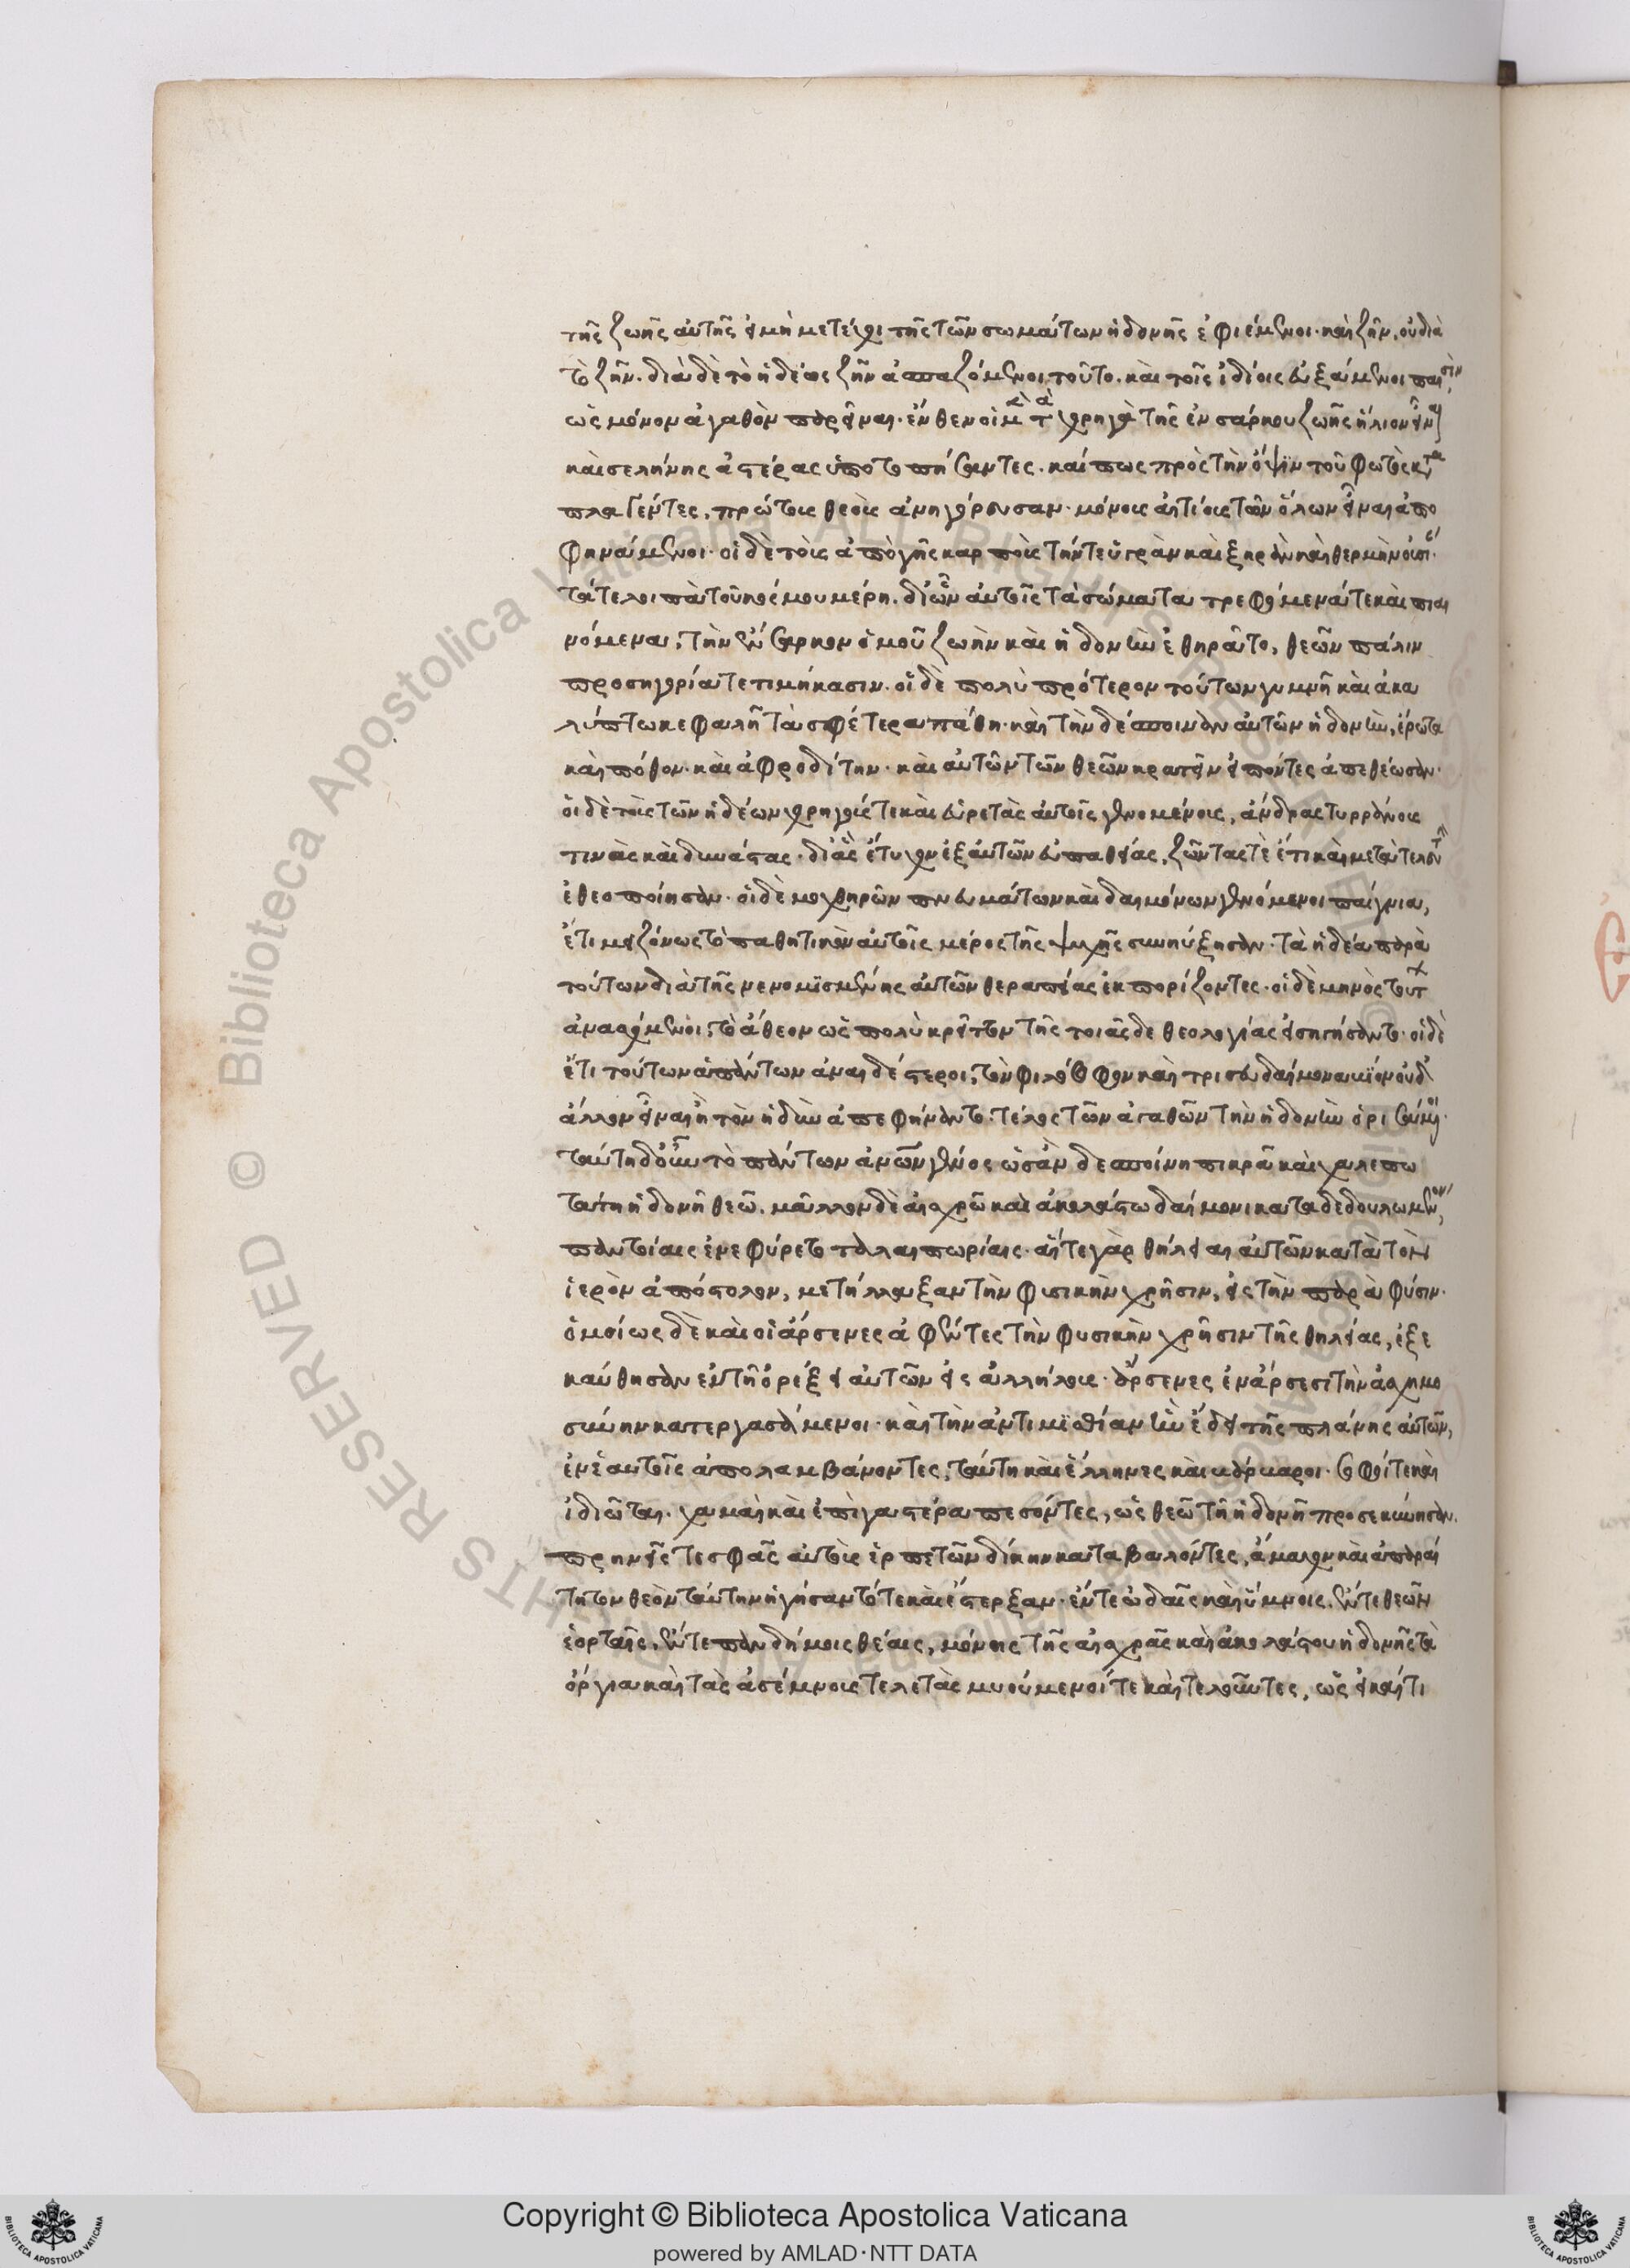 τῆς ζωῆς αὐτῆς εἰ μὴ μετέχοι τῆς τῶν σωμάτων ἡδονῆς ἐφιέμενοι. καὶ ζῆν, οὐ διὰ
τὸ ζῆν. διὰ δὲ τὸ ἡδέως ζῆν ἀσπαζόμενοι τοῦτο. καὶ τοῖς ἰδίοις εὐξάμενοι παισὶν,
ὡς μόνον ἀγαθὸν παρεῖναι. ἔνθεν οἱ μὲν τὰ χορηγὰ τῆς ἐν σάρκου ζωῆς ἥλιον εἶναι
καὶ σελήνης ἀστέρας ὑποτοπήσαντες. καί πως πρὸς τὴν ὄψιν τοῦ φωτὸς κατα
πλαγέντες, πρώτους θεοὺς ἀνηγόρευσαν. μόνους αἰτίους τῶν ὅλων εἶναι ἀπο
φηνάμενοι. οἱ δὲ τοὺς ἀπὸ γῆς καρποὺς τήν τε ὑγρὰν καὶ ξηρὰν καὶ θερμὴν οὐσί
τά τε λοιπὰ τοῦ κόσμου μέρη. δι' ὧν αὐτοῖς τὰ σώματα τρεφόμενά τε καὶ πιαι
νόμενα, τὴν ἔνσαρκον ὁμοῦ ζωὴν καὶ ἡδονὴν ἐθηρᾶτο, θεῶν πάλιν
προσηγορίᾳ τετιμήκασιν. οἱ δὲ πολὺ πρότερον τούτων γυμνῇ καὶ ἀκα
λύπτω κεφαλῇ τὰ σφέτερα πάθη. καὶ τὴν δέσποιναν αὐτῶν ἡδονὴν, ἔρωτα
καὶ πόθον. καὶ ἀφροδίτην. καὶ αὐτῶν τῶν θεῶν κρατεῖν εἰπόντες ἀπεθέωσαν.
οἱ δὲ τοὺς τῶν ἡδέων χορηγούς τε καὶ εὑρετὰς αὐτοῖς γενομένους, ἄνδρας τυράννους
τινὰς καὶ δυνάστας. δι' ἃς ἔτυχον ἐξ αὐτῶν εὐπαθείας, ζῶντας τὲ ἔτι καὶ μετὰ τελευτὴν
ἐθεοποίησαν. οἱ δὲ μοχθηρῶν πνευμάτων καὶ δαιμόνων γενόμενοι παίγνια,
ἔτι μειζόνως τὸ παθητικὸν αὐτοῖς μέρος τῆς ψυχῆς συνηύξησαν. τὰ ἡδέα παρὰ
τούτων διὰ τῆς νενομϊσμένης αὐτῶν θεραπείας ἐκπορίζοντες. οἱ δὲ μηνὸς τούτ
ἀνασχόμενοι, τὸ ἄθεον ὡς πολὺ κρεῖττον τῆς τοιᾶσδε θεολογίας εἰσηγήσαντο. οἱ δὲ
ἔτι τούτων ἁπάντων ἀναιδέστεροι, τὸν φιλόσοφον καὶ τρισευδαίμονα βίον οὐδ'
ἄλλον εἶναι ἢ τὸν ἡδὺν ἀπεφήναντο. τέλος τῶν ἀγαθῶν τὴν ἡδονὴν ὁρισάμενοι.
ταύτῃ δ' οὖν τὸ πάντων ἀνθρώπων γένος ὡσὰν δεσποίνῃ πικρᾷ καὶ χαλεπω
τάτῃ ἡδονῇ θεῷ. μᾶλλον δὲ αἰσχρῷ καὶ ἀκολάστω δαίμονι καταδεδουλωμένον,
παντοίαις ἐνεφύρετο ταλαιπωρίαις. αἵ τε γὰρ θήλειαι αὐτῶν κατὰ τὸν
ἱερὸν ἀπόστολον, μετήλλαξαν τὴν φυσικὴν χρῆσιν, εἰς τὴν παρὰ φύσιν.
ὁμοίως δὲ καὶ οἱ ἄρσενες ἀφέντες τὴν φυσικὴν χρῆσιν τῆς θηλείας, ἐξε
καύθησαν ἐν τῇ ὀρέξει αὐτῶν εἰς ἀλλήλους. ἄρσενες ἐν ἄρσεσι τὴν ἀσχημο
σύνην κατεργασάμενοι. καὶ τὴν ἀντιμϊσθίαν ἣν ἔδει τῆς πλάνης αὐτῶν,
ἐν ἑαυτοῖς ἀπολαμβάνοντες, ταύτῃ καὶ ἕλληνες καὶ βάρβαροι. σοφοί τε καὶ
ἰδιῶται. χαμαὶ καὶ ἐπὶ γαστέρα πεσόντες, ὡς θεῷ τῇ ἡδονῇ προσεκύνησαν.
πρηνεῖς τε σφᾶς αὐτοὺς ἑρπετῶν δίκην καταβαλόντες, ἄμαχον καὶ ἀπαραί
τητον θεὸν ταύτην ἡγήσαντό τε καὶ ἔστερξαν. ἔν τε ᾠδαῖς καὶ ὕμνοις. ἔν τε θεῶν
ἑορταῖς, ἔν τε πανδήμοις θέαις, μόνης τῆς αἰσχρᾶς καὶ ἀκολάστου ἡδονῆς τὰ
ὄργια καὶ τὰς ἀσέμνους τελετὰς μυούμενοί τε καὶ τελοῦντες, ὡς εἰ καί τι
Copyright © Biblioteca Apostolica Vaticana
powered by AMLAD·NTT DATA